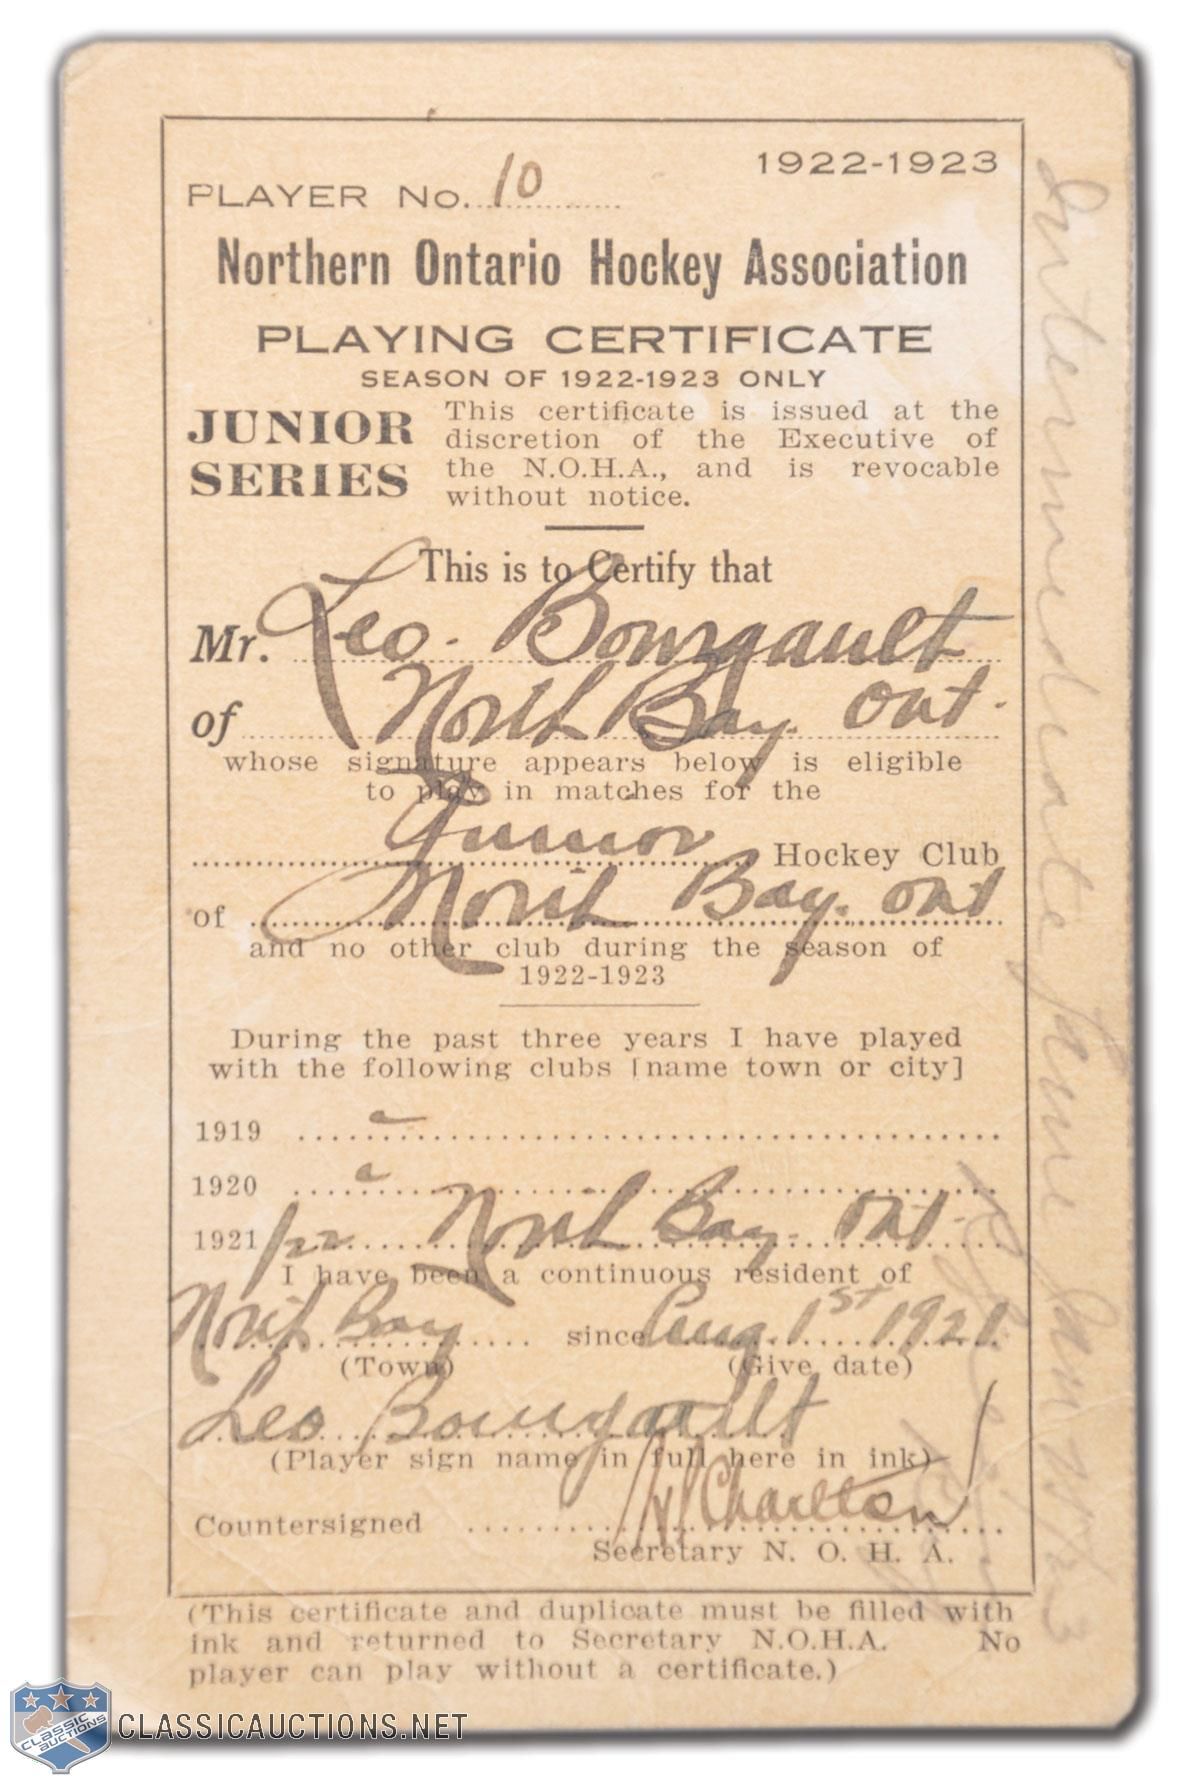 1922-1923
PLAYER No. 10
Northern Ontario Hockey Association
PLAYING CERTIFICATE
SEASON OF 1922-1923 ONLY
JUNIOR SERIES
This certificate is issued at the
discretion of the Executive of
the N.O.H.A., and is revocable
without notice.
This is to Certify that
Mr. Leo. Bourgault
of North Bay. Ont.
whose signature appears below is eligible
to play in matches for the
Junior Hockey Club
of North Bay. Ont
and no other club during the season of
1922-1923
During the past three years I have played
with the following clubs [name town or city]
1919
1920
1921/22 North Bay. Ont.
I have been a continuous resident of
North Bay since Aug. 1st 1921
(Town) (Give date)
Leo Bourgault
(Player sign name in full here in ink)
Countersigned Charlton
Secretary N. O. H. A.
(This certificate and duplicate must be filled with
ink and returned to Secretary N.O.H.A. No
player can play without a certificate.)
Intermediate game Jan
CLASSIC AUCTIONS
CLASSICAUCTIONS.NET